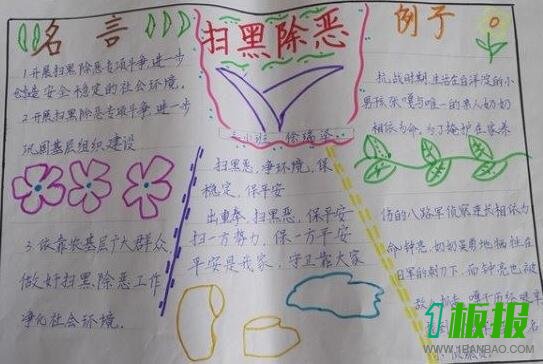 名言
1 开展扫黑除恶专项斗争,进一步
创造安全稳定的社会环境。
2 开展扫黑除恶专项斗争,进一步
巩固基层组织建设
3、依靠从基层广大群众
做好扫黑除恶工作
净化社会环境.
扫黑除恶
扫黑恶,净环境,保
稳定,保平安
出重拳,扫黑恶,保平安
扫一方势力,保一方平安
平安是我家,守卫靠大家
例子
抗战时期,生活在白洋淀的小
男孩张嘎与唯一的亲人奶奶
相依为命,为了掩护在家养
伤的八路军侦察连长
命钟亮,奶奶英勇地牺牲在
日军的刺刀下,而钟亮也被
1板报
WWW.1BANBAO.COM